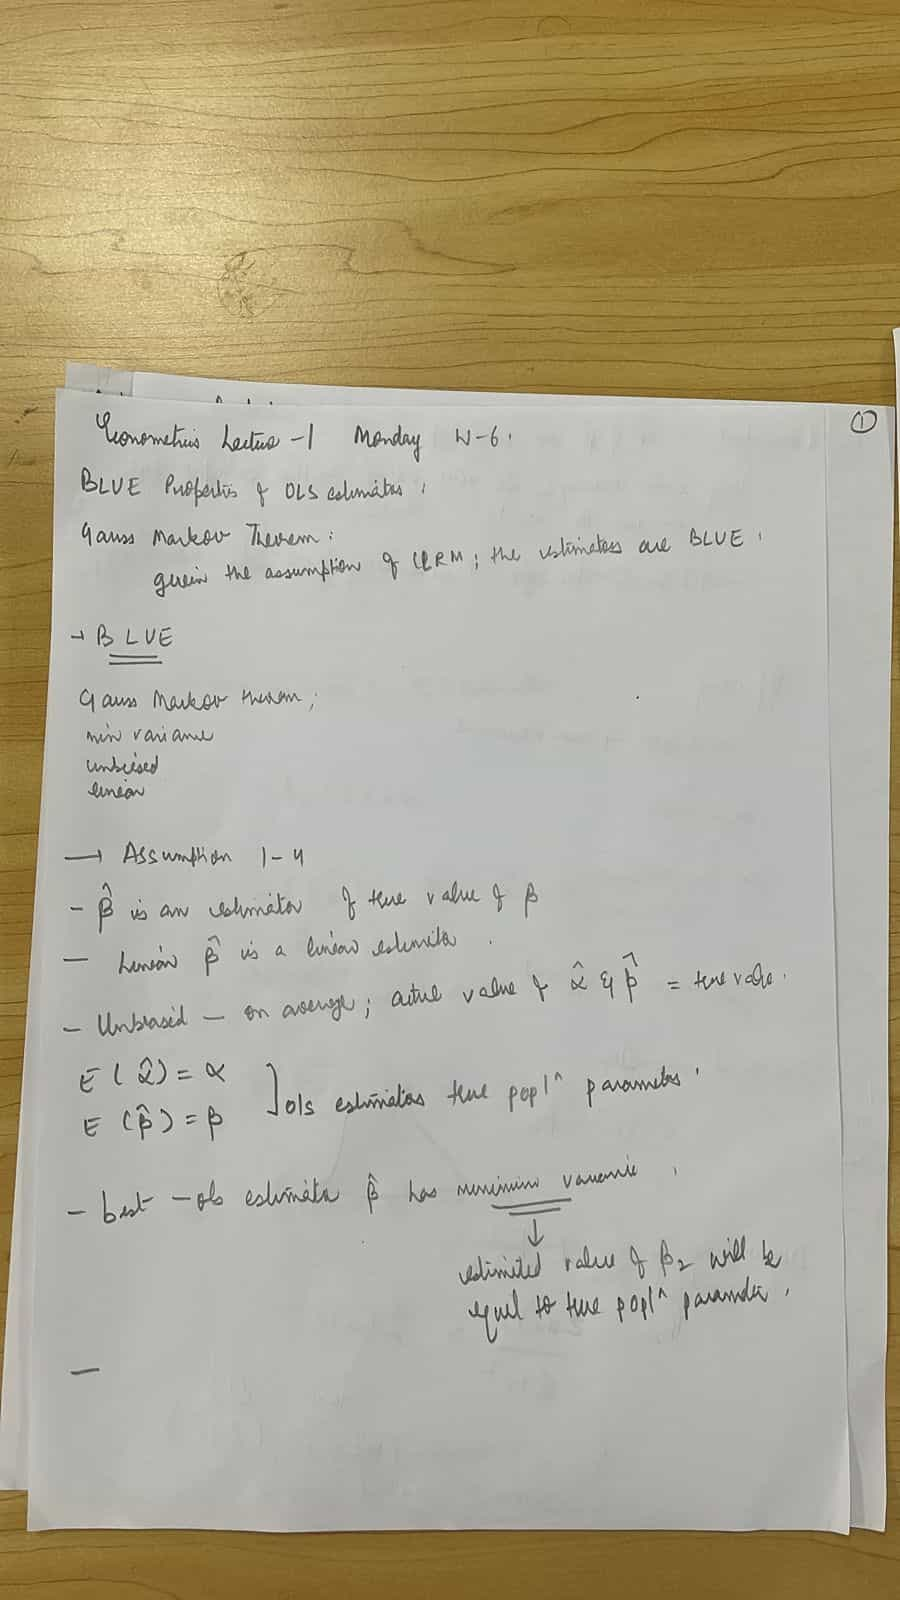 ①
Econometrics Lecture -1 Monday W-6.
BLUE Properties of OLS estimates.
Gauss Markov Theorem:
given the assumption of CLRM; the estimators are BLUE.
→ BLUE
Gauss Markov theorem;
min variance
unbiased
linear
→ Assumption 1-4
- β̂ is an estimator of true value of β
- Linear β̂ is a linear estimator.
- Unbiased - on average; actual value of α̂ & β̂ = true value.
E(α̂) = α
E(β̂) = β ] ols estimators true popl^n parameters.
- best - ols estimator β̂ has minimum variance.
↓
estimated value of β₂ will be
equal to true popl^n parameter.
-